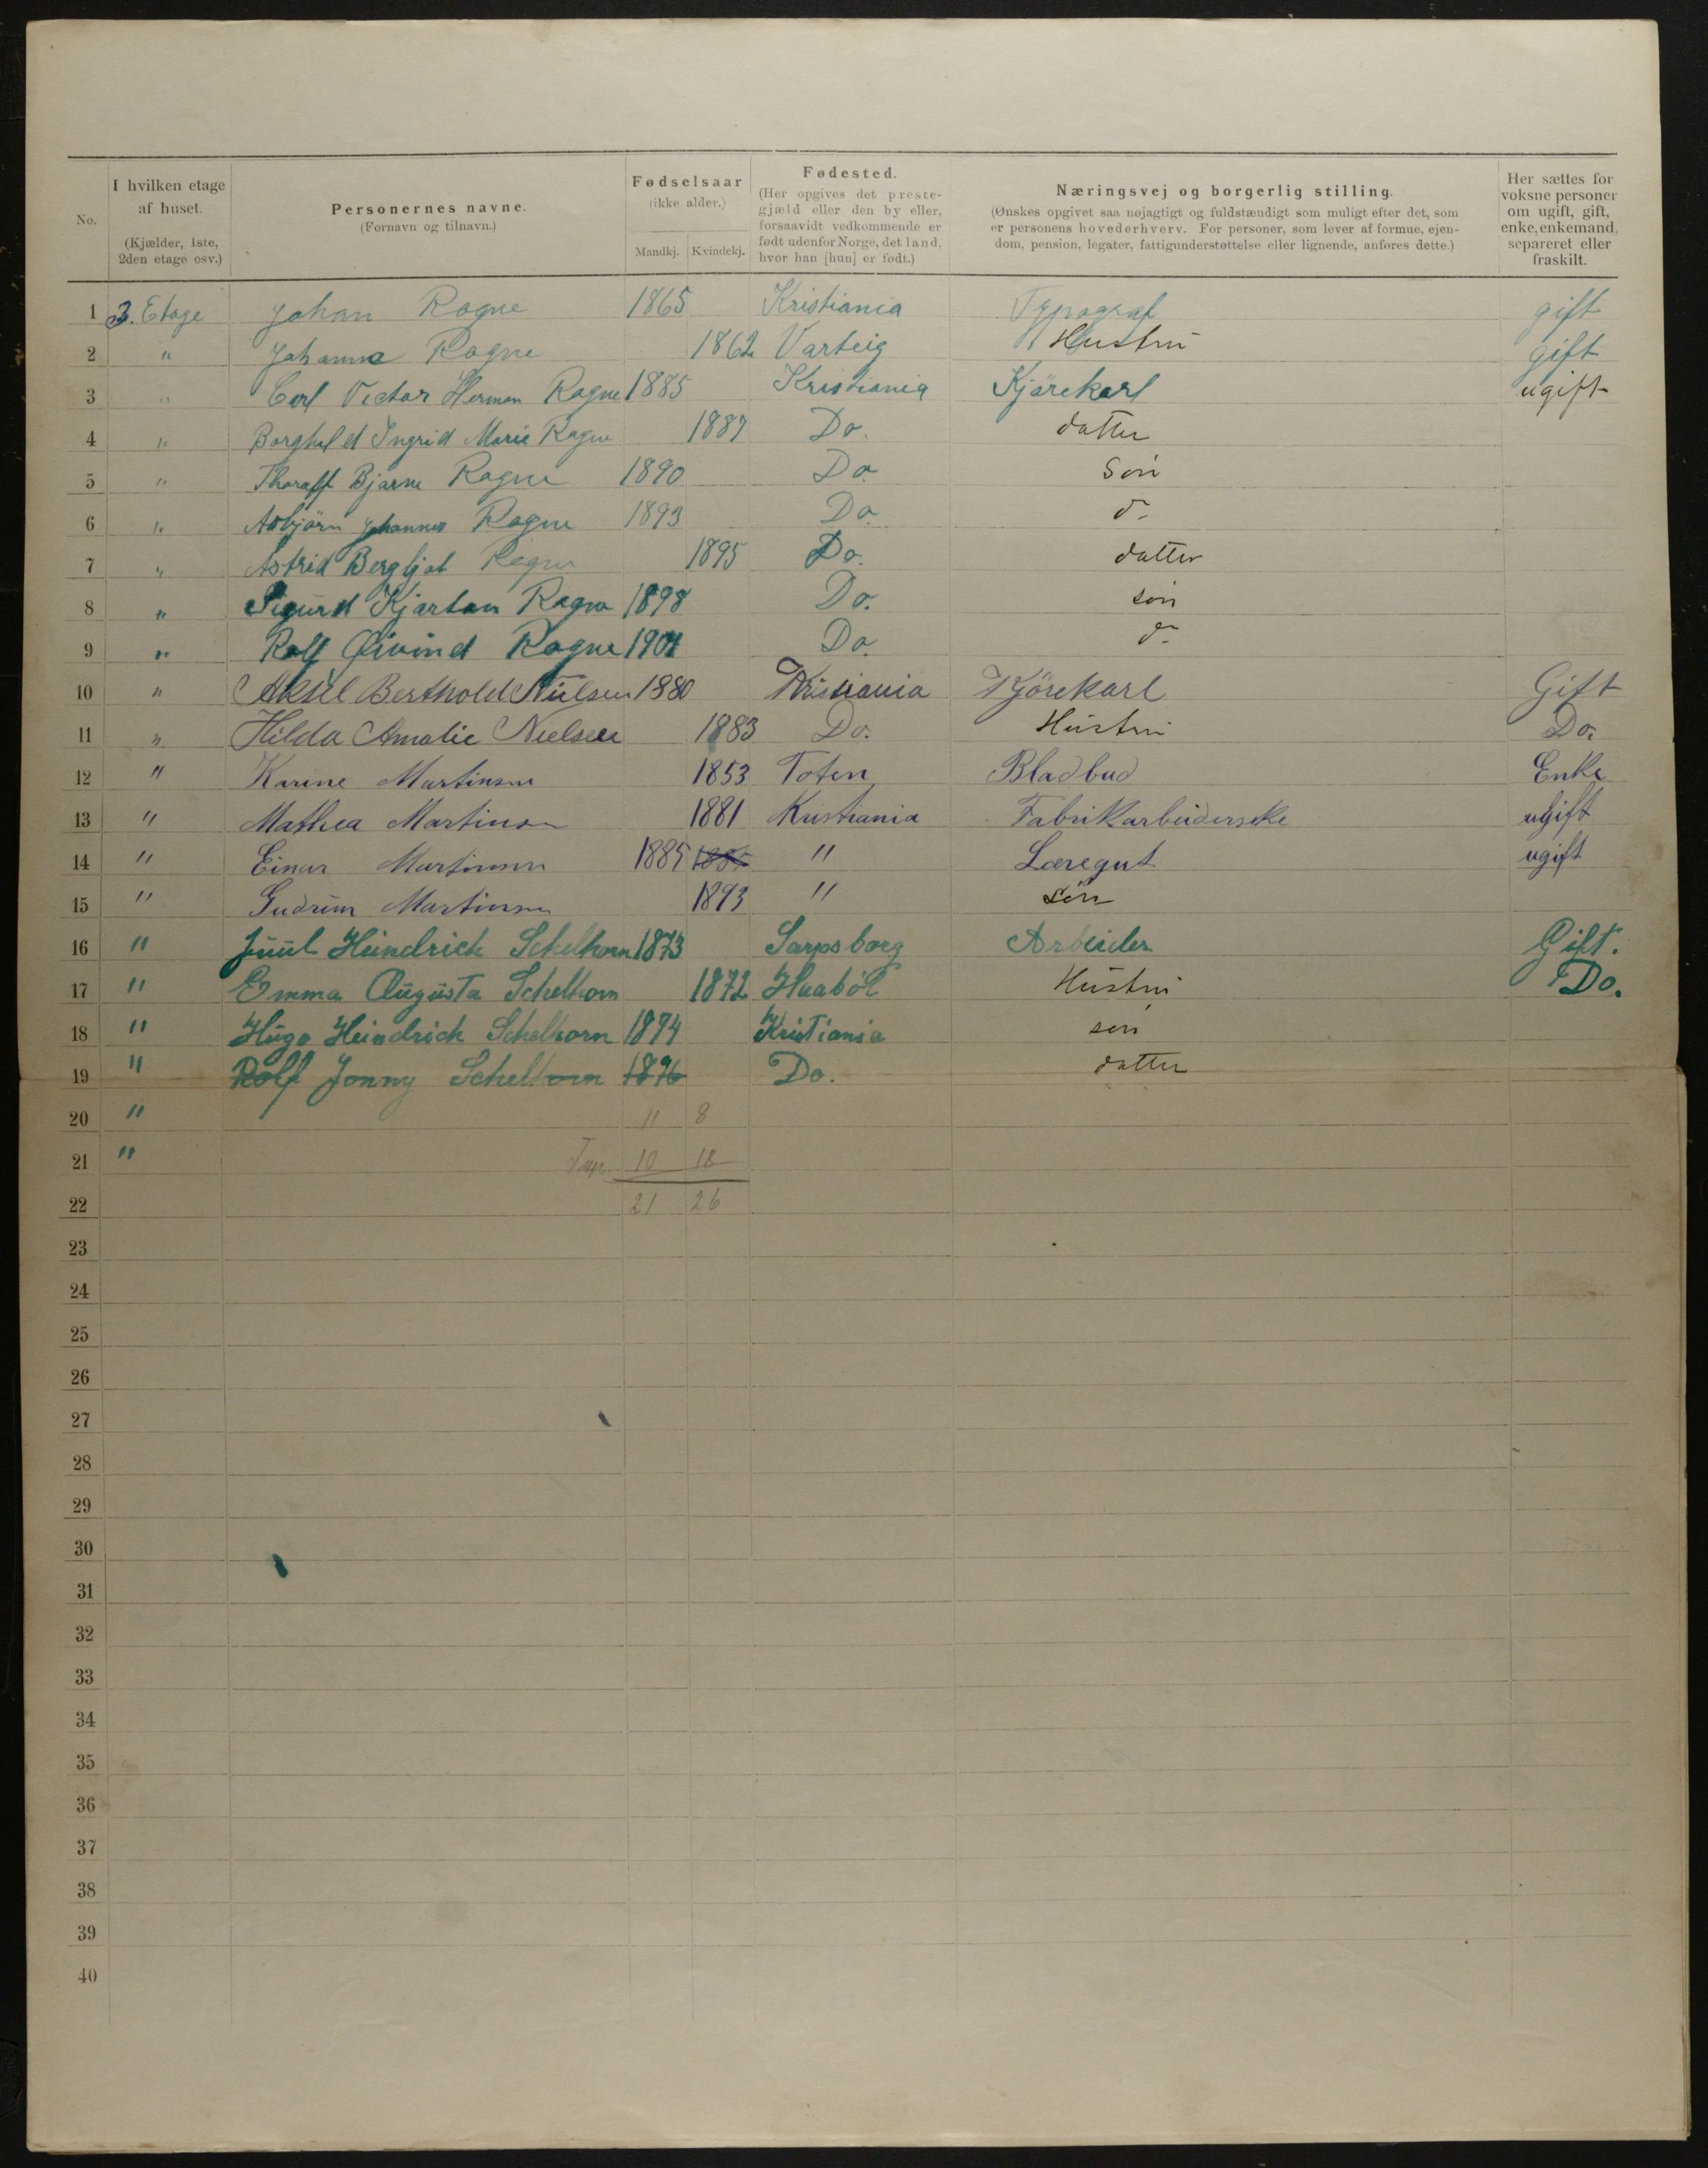 No.
I hvilken etage
af huset.
(Kjælder, 1ste,
2den etage osv.)
Personernes navne.
(Fornavn og tilnavn.)
Fødselsaar
(ikke alder.)
Mandkj. Kvindekj.
Fødested.
(Her opgives det preste-
gjæld eller den by eller,
forsaavidt vedkommende er
født udenfor Norge, det land,
hvor han [hun] er født.)
Næringsvej og borgerlig stilling.
(Ønskes opgivet saa nøjagtigt og fuldstændigt som muligt efter det, som
er personens hovederhverv. For personer, som lever af formue, ejen-
dom, pension, legater, fattigunderstøttelse eller lignende, anføres dette.)
Her sættes for
voksne personer
om ugift, gift,
enke, enkemand,
separeret eller
fraskilt.
1 3. Etage Johan Ragne 1865 Kristiania Typograf gift
2 " Johanna Ragne 1862 Varteig Hustru gift
3 " Carl Victor Herman Ragne 1885 Kristiania Kjørekarl ugift
4 " Borghild Ingrid Marie Ragne 1887 Do. datter
5 " Tharalf Bjarne Ragne 1890 Do. Søn
6 " Asbjörn Johannes Ragne 1893 Do. d-
7 " Astrid Bergljot Ragne 1895 Do. datter
8 " Sigurd Kjartan Ragne 1898 Do. søn
9 " Rolf Øivind Ragne 1901 Do. d-
10 " Aksel Berthold Nielsen 1880 Kristiania Kjörekarl Gift
11 " Hilda Amalie Nielsen 1883 Do. Hustru Do.
12 " Karine Martinsen 1853 Toten Bladbud Enke
13 " Mathea Martinsen 1881 Kristiania Fabrikarbeiderske ugift
14 " Einar Martinsen 1885 1885 " Læregut ugift
15 " Gudrun Martinsen 1893 " søn
16 " Juul Heindrich Schelhorn 1873 Sarpsborg Arbeider Gift.
17 " Emma Augusta Schelhorn 1872 Huaböl Hustru Do.
18 " Hugo Heindrich Schelhorn 1894 Kristiania søn
19 " Rolf Jonny Schelhorn 1896 Do. datter
20 " 11 8
21 " 10 18
22 21 26
23
24
25
26
27
28
29
30
31
32
33
34
35
36
37
38
39
40